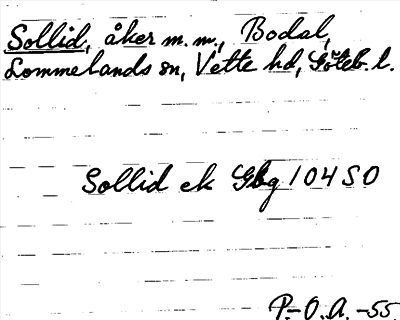 Sollid, åker m.m., Bodal,
Lommelands sn, Vette hd, Göteb. l.
Sollid ek Gbg 104 SO
P.-O.A. -55.